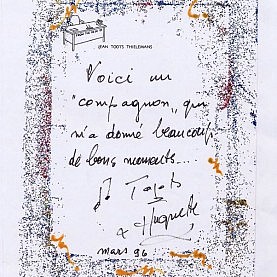 JEAN TOOTS THIELEMANS
Voici un
"compagnon" qui
m'a donné beaucoup
de bons moments...
Toots
& Huguette
mars 96